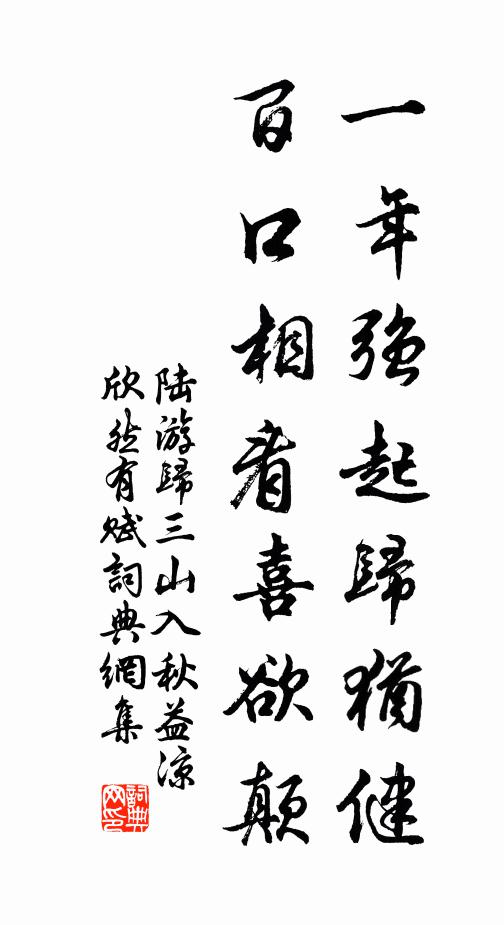 一年強起歸猶健
百口相看喜欲顛
陆游歸三山入秋益凉
欣然有赋詞典網集
詞典网印